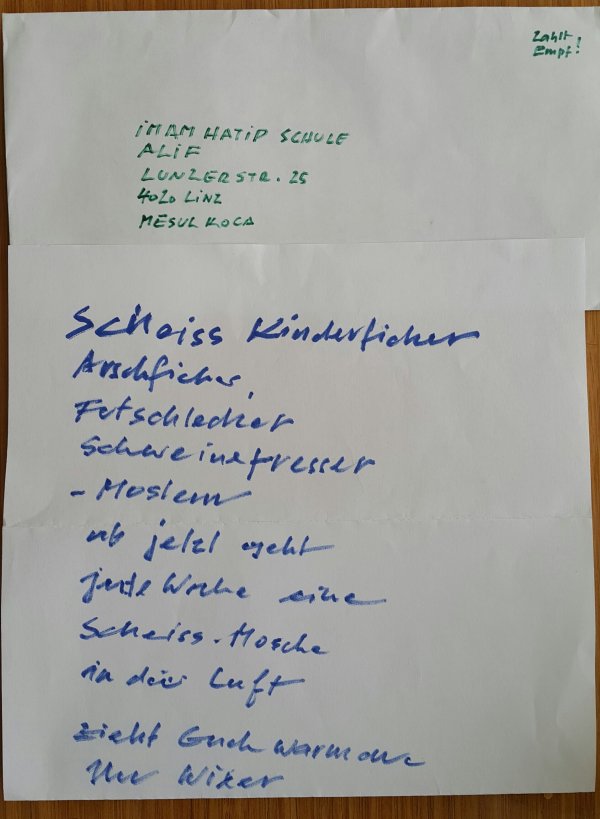 Zahlt
Empf!
IMAM HATIP SCHULE
ALIF
LUNZERSTR. 25
4020 LINZ
MESUL KOCA
Scheiss Kinderficker
Arschficker,
Futschlecker
Schweinefresser
- Moslem
ab jetzt geht
jede Woche eine
Scheiss-Mosche
in die Luft
zieht Euch warm an
Ihr Wixer